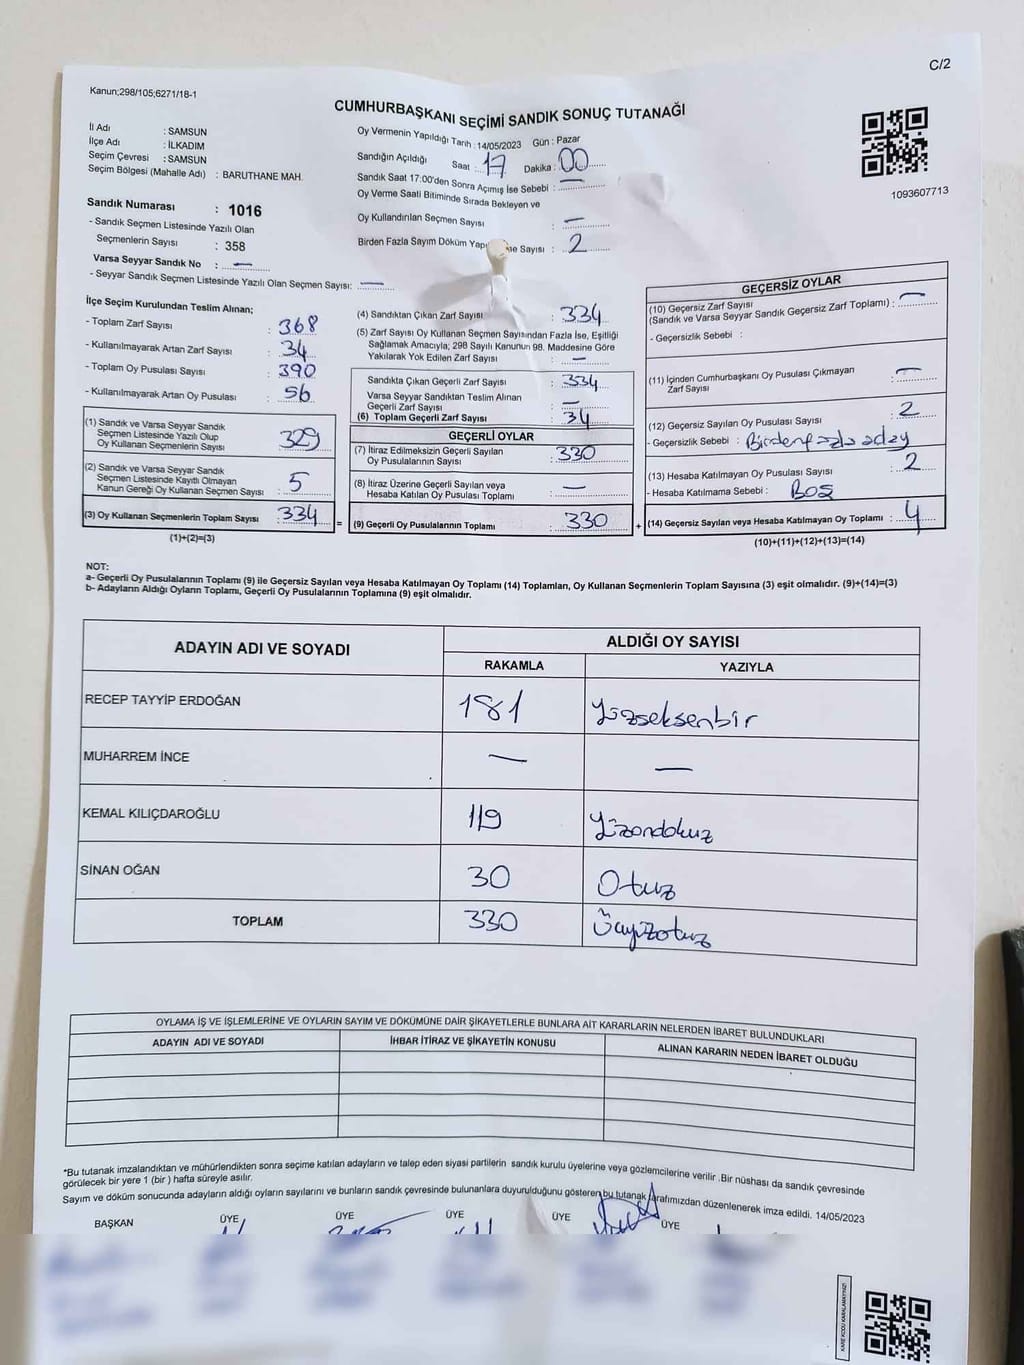 C/2
Kanun;298/105;6271/18-1
CUMHURBAŞKANI SEÇİMİ SANDIK SONUÇ TUTANAĞI
İl Adı : SAMSUN
İlçe Adı : İLKADIM
Seçim Çevresi : SAMSUN
Seçim Bölgesi (Mahalle Adı) : BARUTHANE MAH.
Sandık Numarası : 1016
- Sandık Seçmen Listesinde Yazılı Olan
Seçmenlerin Sayısı : 358
Varsa Seyyar Sandık No : —
- Seyyar Sandık Seçmen Listesinde Yazılı Olan Seçmen Sayısı: —
Oy Vermenin Yapıldığı Tarih : 14/05/2023 Gün : Pazar
Sandığın Açıldığı Saat : 17 Dakika : 00
Sandık Saat 17:00'den Sonra Açımış İse Sebebi : —
Oy Verme Saati Bitiminde Sırada Bekleyen ve
Oy Kullandırılan Seçmen Sayısı : —
Birden Fazla Sayım Döküm Yap se Sayısı : 2
1093607713
İlçe Seçim Kurulundan Teslim Alınan;
- Toplam Zarf Sayısı : 368
- Kullanılmayarak Artan Zarf Sayısı : 34
- Toplam Oy Pusulası Sayısı : 390
- Kullanılmayarak Artan Oy Pusulası : 56
(1) Sandık ve Varsa Seyyar Sandık
Seçmen Listesinde Yazılı Olup
Oy Kullanan Seçmenlerin Sayısı : 329
(2) Sandık ve Varsa Seyyar Sandık
Seçmen Listesinde Kayıtlı Olmayan
Kanun Gereği Oy Kullanan Seçmen Sayısı : 5
(3) Oy Kullanan Seçmenlerin Toplam Sayısı : 334
(1)+(2)=(3)
(4) Sandıktan Çıkan Zarf Sayısı : 334
(5) Zarf Sayısı Oy Kullanan Seçmen Sayısından Fazla İse, Eşitliği
Sağlamak Amacıyla; 298 Sayılı Kanunun 98. Maddesine Göre
Yakılarak Yok Edilen Zarf Sayısı : —
Sandıkta Çıkan Geçerli Zarf Sayısı : 334
Varsa Seyyar Sandıktan Teslim Alınan
Geçerli Zarf Sayısı : —
(6) Toplam Geçerli Zarf Sayısı : 34
GEÇERLİ OYLAR
(7) İtiraz Edilmeksizin Geçerli Sayılan
Oy Pusulalarının Sayısı : 330
(8) İtiraz Üzerine Geçerli Sayılan veya
Hesaba Katılan Oy Pusulası Toplamı : —
= (9) Geçerli Oy Pusulalarının Toplamı : 330 +
GEÇERSİZ OYLAR
(10) Geçersiz Zarf Sayısı
(Sandık ve Varsa Seyyar Sandık Geçersiz Zarf Toplamı) : —
- Geçersizlik Sebebi :
(11) İçinden Cumhurbaşkanı Oy Pusulası Çıkmayan
Zarf Sayısı : —
(12) Geçersiz Sayılan Oy Pusulası Sayısı : 2
- Geçersizlik Sebebi : Birden fazla aday
(13) Hesaba Katılmayan Oy Pusulası Sayısı : 2
- Hesaba Katılmama Sebebi : Boş
(14) Geçersiz Sayılan veya Hesaba Katılmayan Oy Toplamı : 4
(10)+(11)+(12)+(13)=(14)
NOT:
a- Geçerli Oy Pusulalarının Toplamı (9) ile Geçersiz Sayılan veya Hesaba Katılmayan Oy Toplamı (14) Toplamları, Oy Kullanan Seçmenlerin Toplam Sayısına (3) eşit olmalıdır. (9)+(14)=(3)
b- Adayların Aldığı Oyların Toplamı, Geçerli Oy Pusulalarının Toplamına (9) eşit olmalıdır.
ADAYIN ADI VE SOYADI ALDIĞI OY SAYISI
RAKAMLA YAZIYLA
RECEP TAYYİP ERDOĞAN 181 Yüzseksenbir
MUHARREM İNCE — —
KEMAL KILIÇDAROĞLU 119 Yüzondokuz
SİNAN OĞAN 30 Otuz
TOPLAM 330 Üçyüzotuz
OYLAMA İŞ VE İŞLEMLERİNE VE OYLARIN SAYIM VE DÖKÜMÜNE DAİR ŞİKAYETLERLE BUNLARA AİT KARARLARIN NELERDEN İBARET BULUNDUKLARI
ADAYIN ADI VE SOYADI İHBAR İTİRAZ VE ŞİKAYETİN KONUSU ALINAN KARARIN NEDEN İBARET OLDUĞU
*Bu tutanak imzalandıktan ve mühürlendikten sonra seçime katılan adayların ve talep eden siyasi partilerin sandık kurulu üyelerine veya gözlemcilerine verilir .Bir nüshası da sandık çevresinde
görülecek bir yere 1 (bir ) hafta süreyle asılır.
Sayım ve döküm sonucunda adayların aldığı oyların sayılarını ve bunların sandık çevresinde bulunanlara duyurulduğunu gösteren bu tutanak tarafımızdan düzenlenerek imza edildi. 14/05/2023
BAŞKAN ÜYE ÜYE ÜYE ÜYE ÜYE
KARE KODU KARALAMAYINIZ!